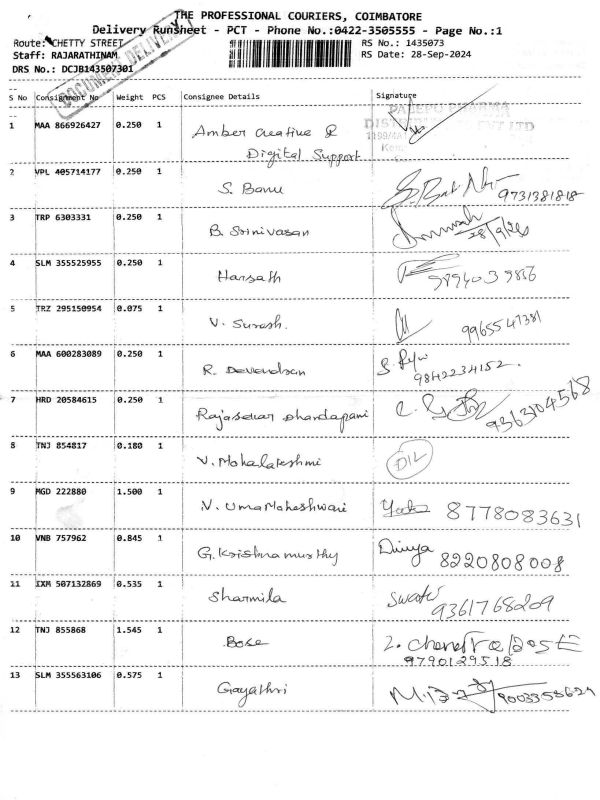 THE PROFESSIONAL COURIERS, COIMBATORE
Delivery Runsheet - PCT - Phone No.:0422-3505555 - Page No.:1
Route: CHETTY STREET RS No.: 1435073
Staff: RAJARATHINAM RS Date: 28-Sep-2024
DRS No.: DCJB143507301
DOCUMENT DELIVERY
S No Consignment No Weight PCS Consignee Details Signature
1 MAA 866926427 0.250 1 Amber creative &
Digital Support
PHARMA
PVT LTD
2 VPL 405714177 0.250 1 S. Banu 9731381818
3 TRP 6303331 0.250 1 B. Srinivasan 28/9/24
4 SLM 355525955 0.250 1 Harsath 9894039856
5 TRZ 295150954 0.075 1 V. Suresh. 9965547381
6 MAA 600283089 0.250 1 R. Devendran
9842234152.
7 HRD 20584615 0.250 1 Rajasekar dhandapani 9363104568
8 TNJ 854817 0.180 1 V. Mahalakshmi D/L
9 MGD 222880 1.500 1 V. UmaMaheshwari 8778083631
10 VNB 757962 0.845 1 G. Krishnamurthy Divya
8220808008
11 IXM 507132869 0.535 1 Sharmila Swati
9361768209
12 TNJ 855868 1.545 1 Bose
9790129518
13 SLM 355563106 0.575 1 Gayathri 9003358624